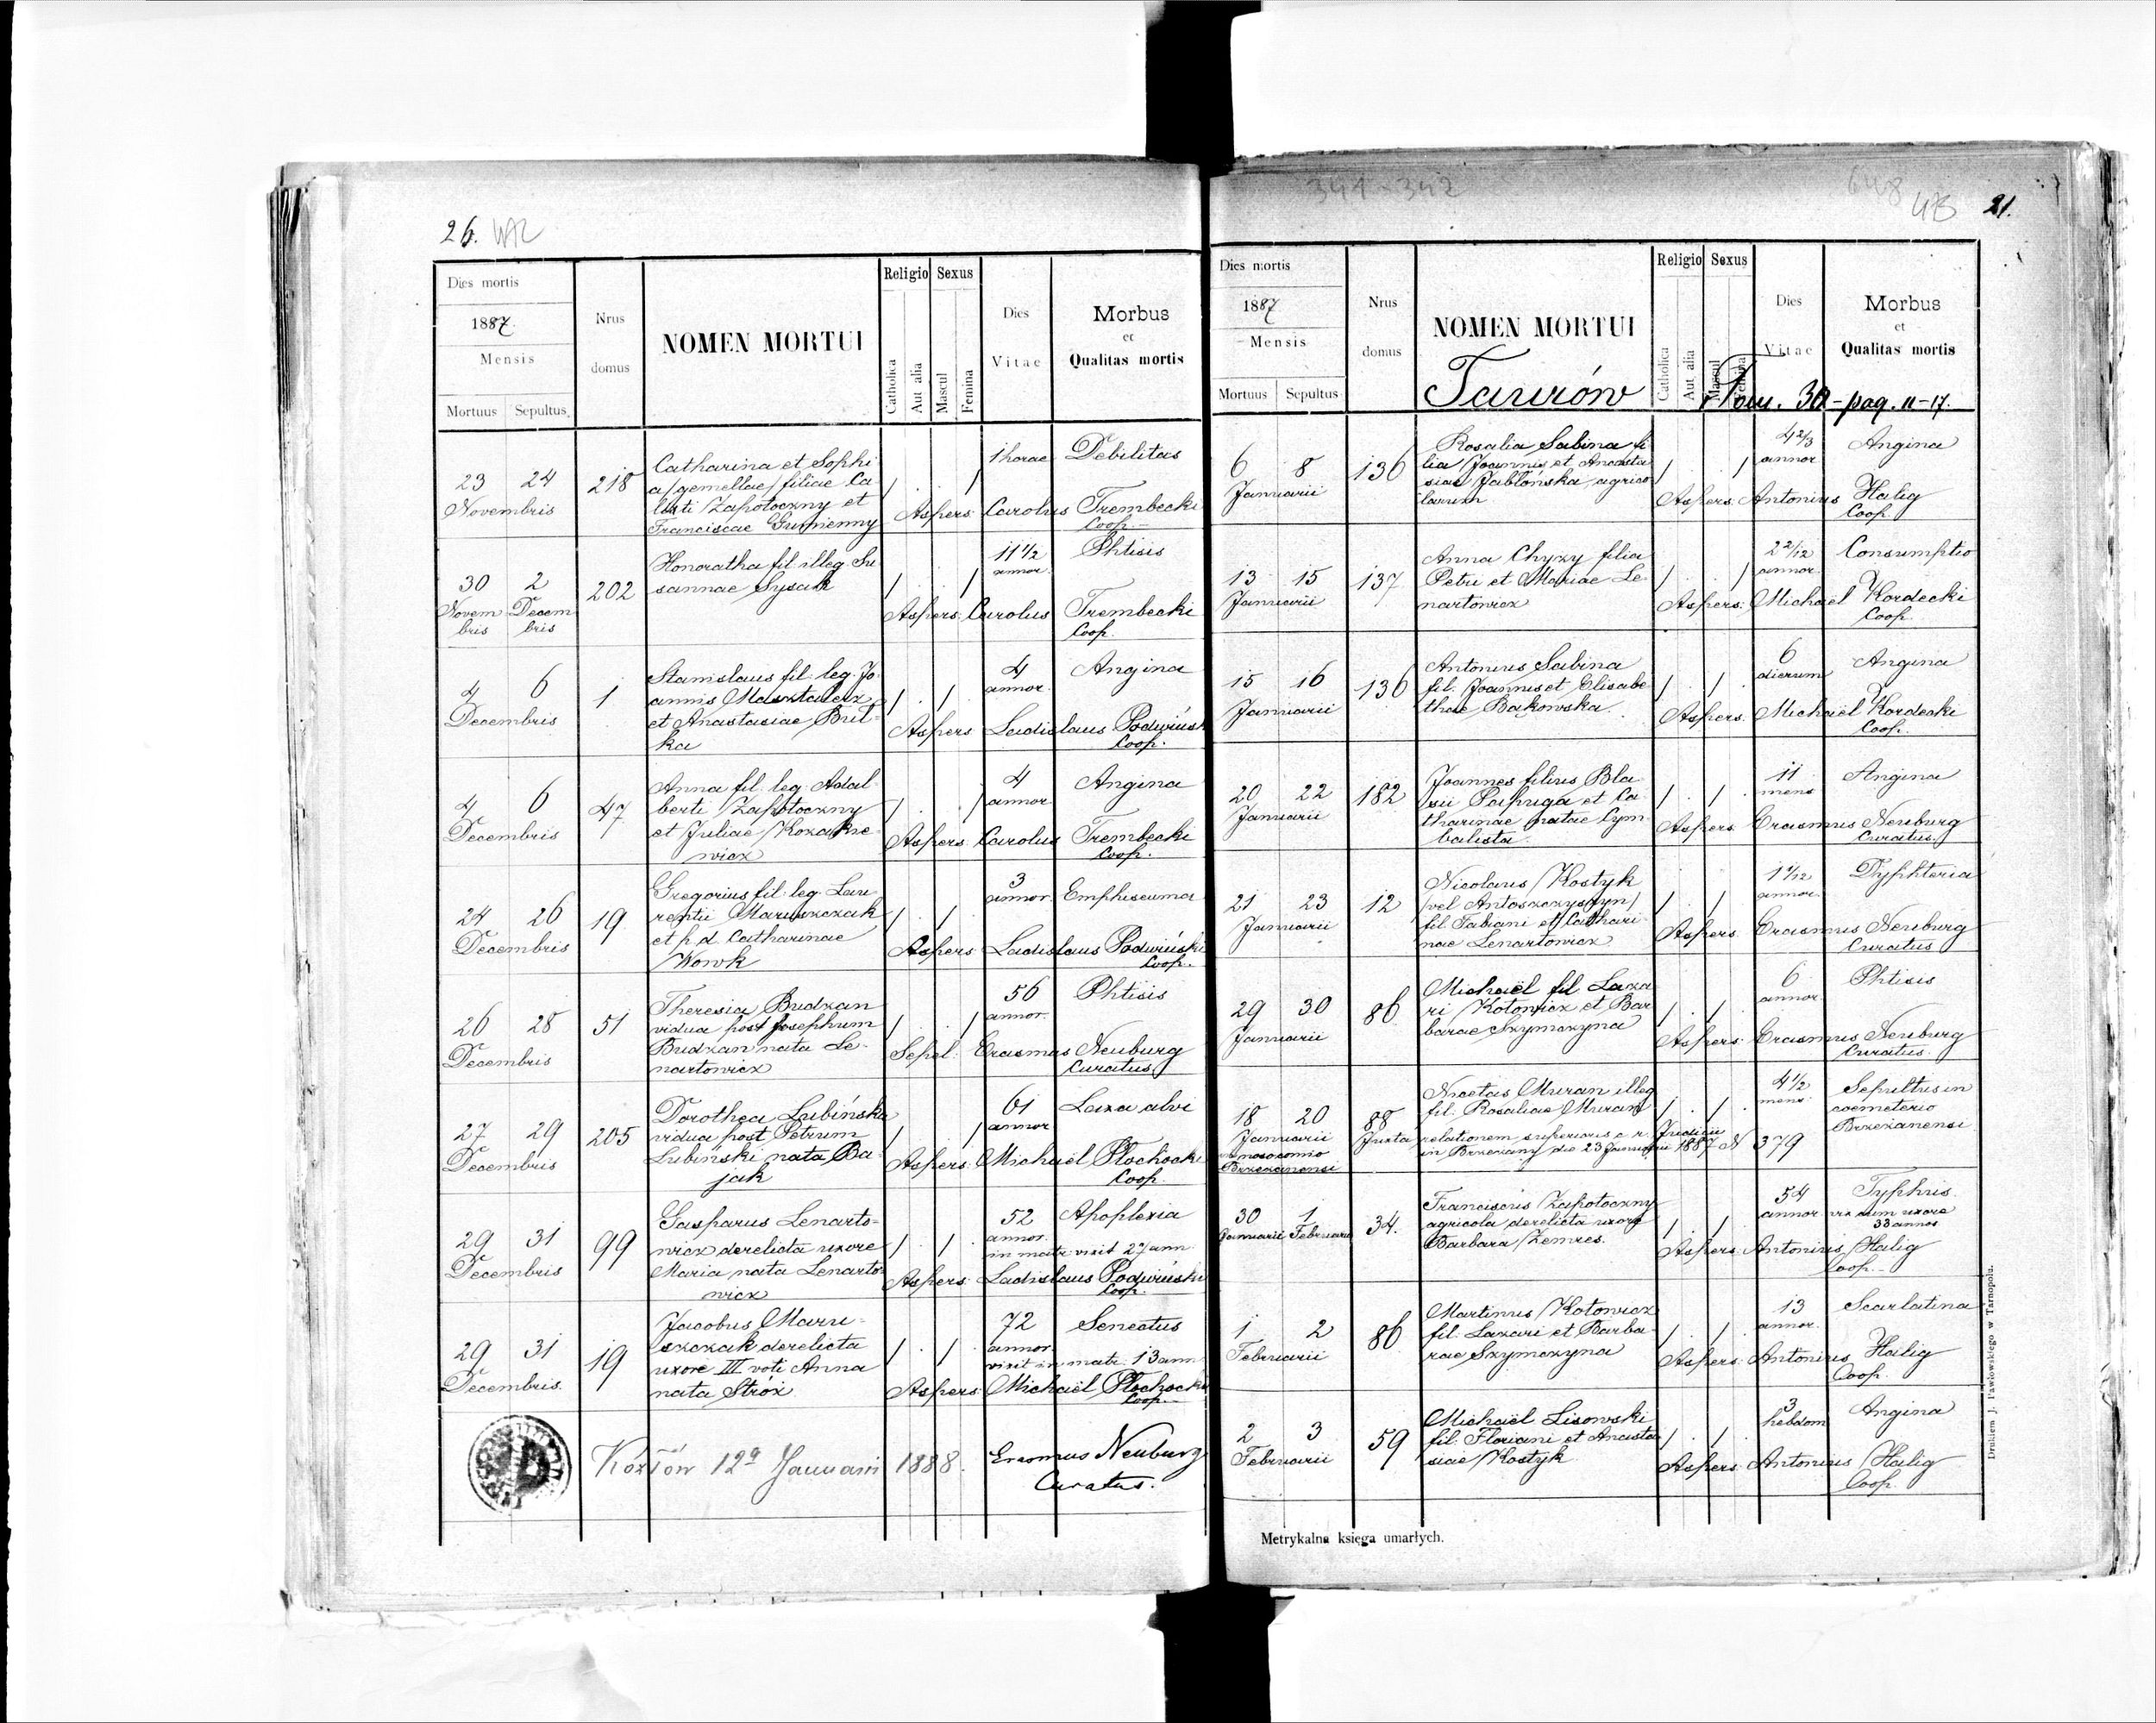 26.
Dies mortis
1887.
Mensis
Mortuus Sepultus
Nrus domus
NOMEN MORTUI
Religio Sexus
Catholica Aut alia Mascul Femina
Dies Vitae
Morbus
et
Qualitas mortis
23 24 218 Catharina et Sophi 1 horae Debilitas
Novembris a/gemellae/filiae Ca
Zapotoczny et Aspers. Carolus Trembecki
Franciscae Gumienny Coop.
30 2 202 Honoratha fil illeg. Su 11 1/2 annor. Phtisis
Novem Decem sannae Sysak Aspers. Carolus Trembecki
bris bris Coop.
4 6 1 Stanislaus fil. leg. Jo 4 annor. Angina
Decembris annis Masztalerz
et Anastasiae Bril- Aspers Ladislaus
ka Coop.
4 6 47 Anna fil. leg. Adal- 4 annor. Angina
Decembris berti Zapotoczny
et Juliae Kozakie- Aspers Carolus Trembecki
wicz Coop.
24 26 19 Gregorius fil. leg. Lau 3 annor. Emphiseuma
Decembris rentii Maruszczak
et p.d. Catharinae Aspers Ladislaus
Wowk Coop.
26 28 51 Theresia Budzan 56 annor. Phtisis
Decembris vidua post Josephum
Budzan nata Le- Sepel: Erasmus Neuburg
nartowicz Curatus
27 29 205 Dorothea Lubińska 61 annor Laxa alvi
Decembris vidua post Petrum
Lubinski nata Ba- Aspers: Michaël Płochocki
jak Coop.
29 31 99 Gasparus Lenarto- 52 annor. Apoplexia
Decembris wicz derelicta uxore in matr. vixit 27 ann
Maria nata Lenarto Aspers: Ladislaus
wicz Coop.
29 31 19 Jacobus Maru- 72 annor. Senectus
Decembris. szczak derelicta
uxore III voti Anna vixit in matr. 13 ann
nata Stróż Aspers: Michaël Płochocki
Coop.
Kózłów 12a Januarii 1888. Erasmus Neuburg
Curatus.
341-342
648
21.
Dies mortis
1887
Mensis
Mortuus Sepultus
Nrus domus
NOMEN MORTUI
Taurów
Religio Sexus
Catholica Aut alia Mascul Femina
Dies Vitae
Morbus
et
Qualitas mortis
Tom. 30-pag. 11-17.
6 8 136 Rosalia Sabina fi 4 2/3 annor Angina
Januarii lia Joannis et Anasta
siae Jabłońska agrico Aspers: Antonius Halig
larum Coop.
13 15 137 Anna Chyzy filia 2 2/12 annor. Consumptio
Januarii Petri et Mariae Le-
nartowicz Aspers: Michaël Kordecki
Coop.
15 16 136 Antonius Sabina 6 dierum Angina
Januarii fil. Joannis et Elisabe
thae Bakowska. Aspers. Michaël Kordecki
Coop.
20 22 182 Joannes filius Bla 11 mens Angina
Januarii sii Papuga et Ca
tharinae natae Cym- Aspers Erasmus Neuburg
balista Curatus.
21 23 12 Nicolaus Kostyk 1 1/12 annor. Dyphteria
Januarii /vel Antoszczyszyn/
fil Fabiani et Cathari- Aspers. Erasmus Neuburg
nae Lenartowicz Curatus
29 30 86 Michaël fil Laza 6 annor. Phtisis
Januarii ri Kotowicz et Bar
barae Szymczyna Aspers: Erasmus Neuburg
Curatus.
18 20 88 Nicetas Muran illeg 4 1/2 mens. Sepultus in
Januarii fil. Rosaliae Muran coemeterio
in nosocomio Juxta relationem superioris c. r. Judicii Brzezanensi
Brzezanensi in Brzezany die 23 Januarii 1887 N 379
30 1 34. Franciscus Zapotoczny 54 annor Typhus.
Januarii Februarii agricola derelicta uxore vix cum uxore
Barbara Zemres. 33 annos
Aspers: Antonius Halig
Coop.
1 2 86 Martinus Kotowicz 13 annor. Scarlatina
Februarii fil. Lazari et Barba-
rae Szymczyna Aspers: Antonius Halig
Coop.
2 3 59 Michaël Lisowski 3 hebdom Angina
Februarii fil. Floriani et Anasta
siae Kostyk Aspers. Antonius Halig
Coop.
Metrykalna księga umarłych.
Drukiem J. Pawłowskiego w Tarnopolu.